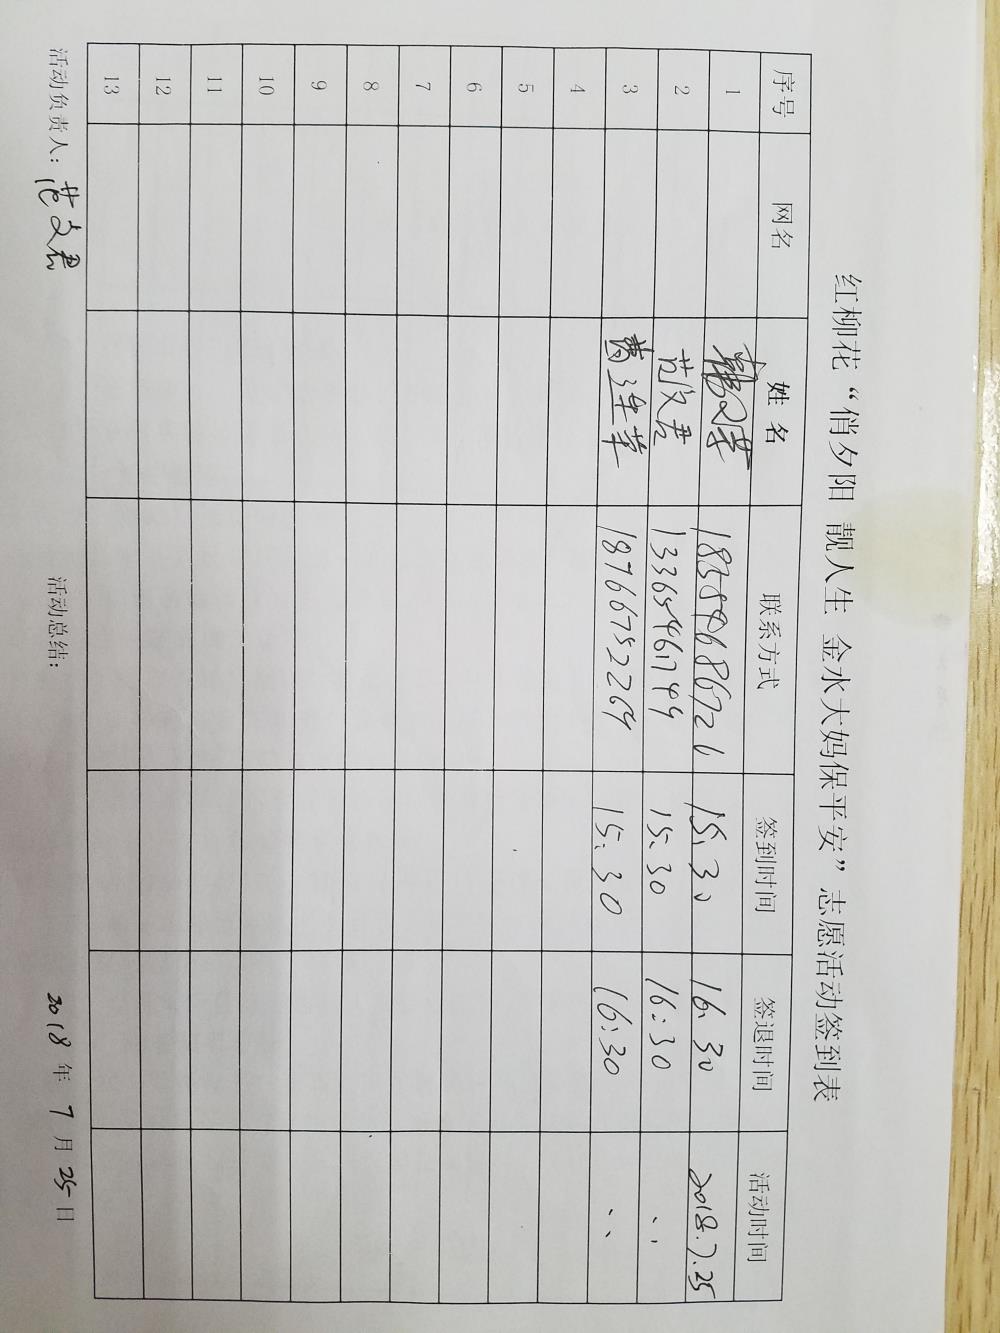 红柳花“俏夕阳 靓人生 金水大妈保平安”志愿活动签到表
序号 网名 姓名 联系方式 签到时间 签退时间 活动时间
1 18554686726 15:30 16:30 2018.7.25
2 范文君 13365461744 15:30 16:30 〃
3 18766752269 15:30 16:30 〃
4
5
6
7
8
9
10
11
12
13
活动负责人：范文君 活动总结： 2018年7月25日